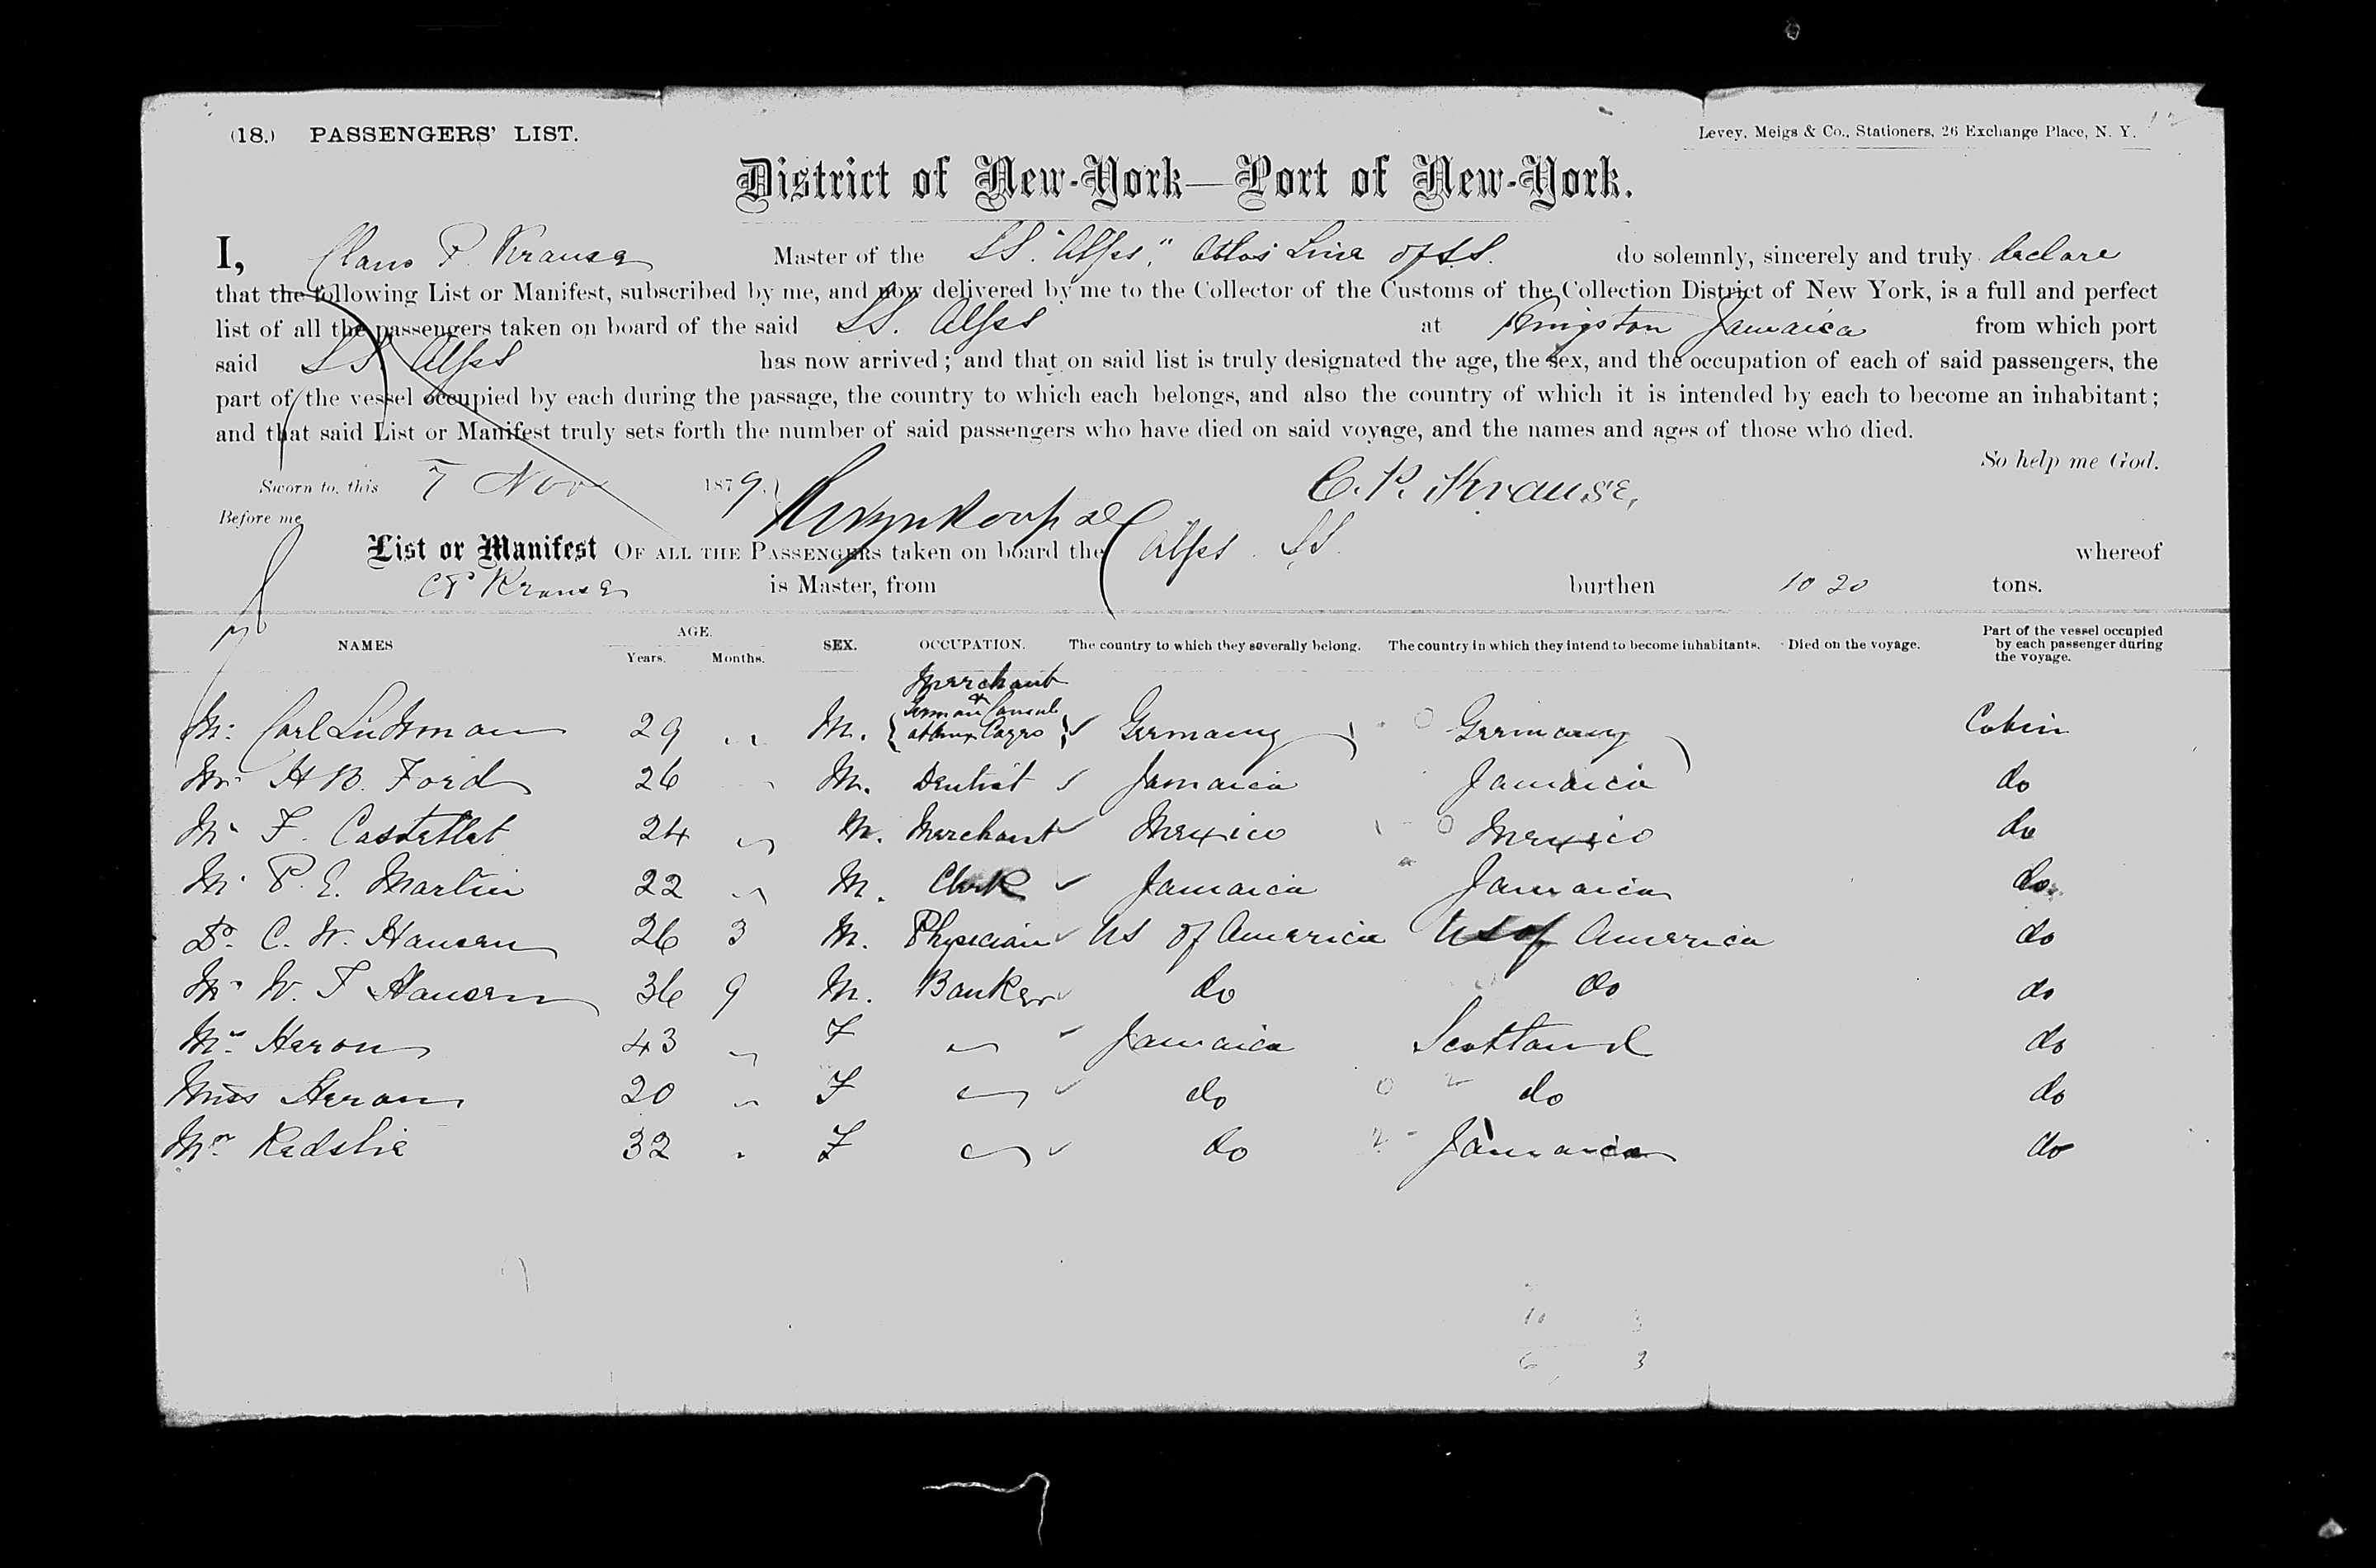 (18.) PASSENGERS' LIST.
Levey, Meigs & Co., Stationers, 26 Exchange Place, N. Y.
District of New-York—Port of New-York.
I, Claus P. Krause Master of the SS. "Alps", Atlas Line of S.S. do solemnly, sincerely and truly declare
that the following List or Manifest, subscribed by me, and now delivered by me to the Collector of the Customs of the Collection District of New York, is a full and perfect
list of all the passengers taken on board of the said SS. Alps at Kingston Jamaica from which port
said SS. Alps has now arrived; and that on said list is truly designated the age, the sex, and the occupation of each of said passengers, the
part of the vessel occupied by each during the passage, the country to which each belongs, and also the country of which it is intended by each to become an inhabitant;
and that said List or Manifest truly sets forth the number of said passengers who have died on said voyage, and the names and ages of those who died.
So help me God.
Sworn to, this 7 Nov 1879. C. P. Krause,
Before me
List or Manifest OF ALL THE PASSENGERS taken on board the Alps SS. whereof
CP Krause is Master, from burthen 1020 tons.
NAMES AGE. Years. Months. SEX. OCCUPATION. The country to which they severally belong. The country in which they intend to become inhabitants. Died on the voyage. Part of the vessel occupied by each passenger during the voyage.
Mr. Carl 29 " M. Merchant & German Consul Germany Germany Cabin
Mr. H B. Ford 26 " M. Dentist Jamaica Jamaica do
Mr. F. 24 " M. Merchant Mexico Mexico do
Mr. P. E. Martin 22 " M. Clerk Jamaica Jamaica do
Dr. C. W. Hansen 26 3 M. Physician US of America US of America do
Mr. W. F Hansen 36 9 M. Banker do do do
Mrs. Heron 43 " F " Jamaica Scotland do
Miss Heron 20 " F " do do do
Mrs. 32 " F " do Jamaica do
10
6 3